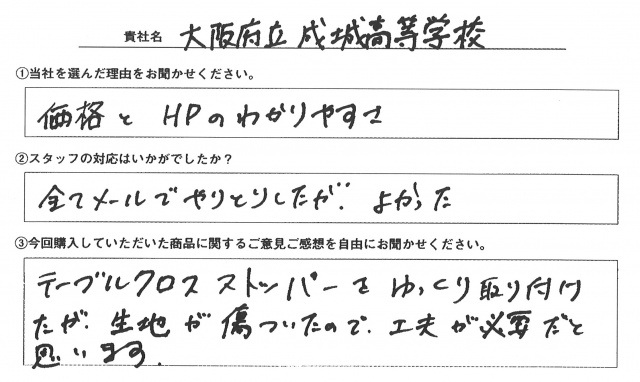 貴社名 大阪府立成城高等学校
①当社を選んだ理由をお聞かせください。
価格と HPのわかりやすさ
②スタッフの対応はいかがでしたか？
全てメールでやりとりしたが、よかった
③今回購入していただいた商品に関するご意見ご感想を自由にお聞かせください。
テーブルクロスストッパーをゆっくり取り付け
たが、生地が傷ついたので、工夫が必要だと
思います。